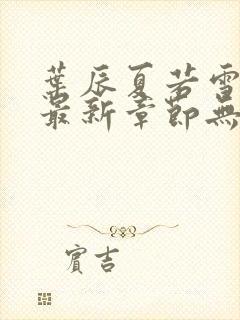 葉辰夏若雪
最新章節無
賓吉